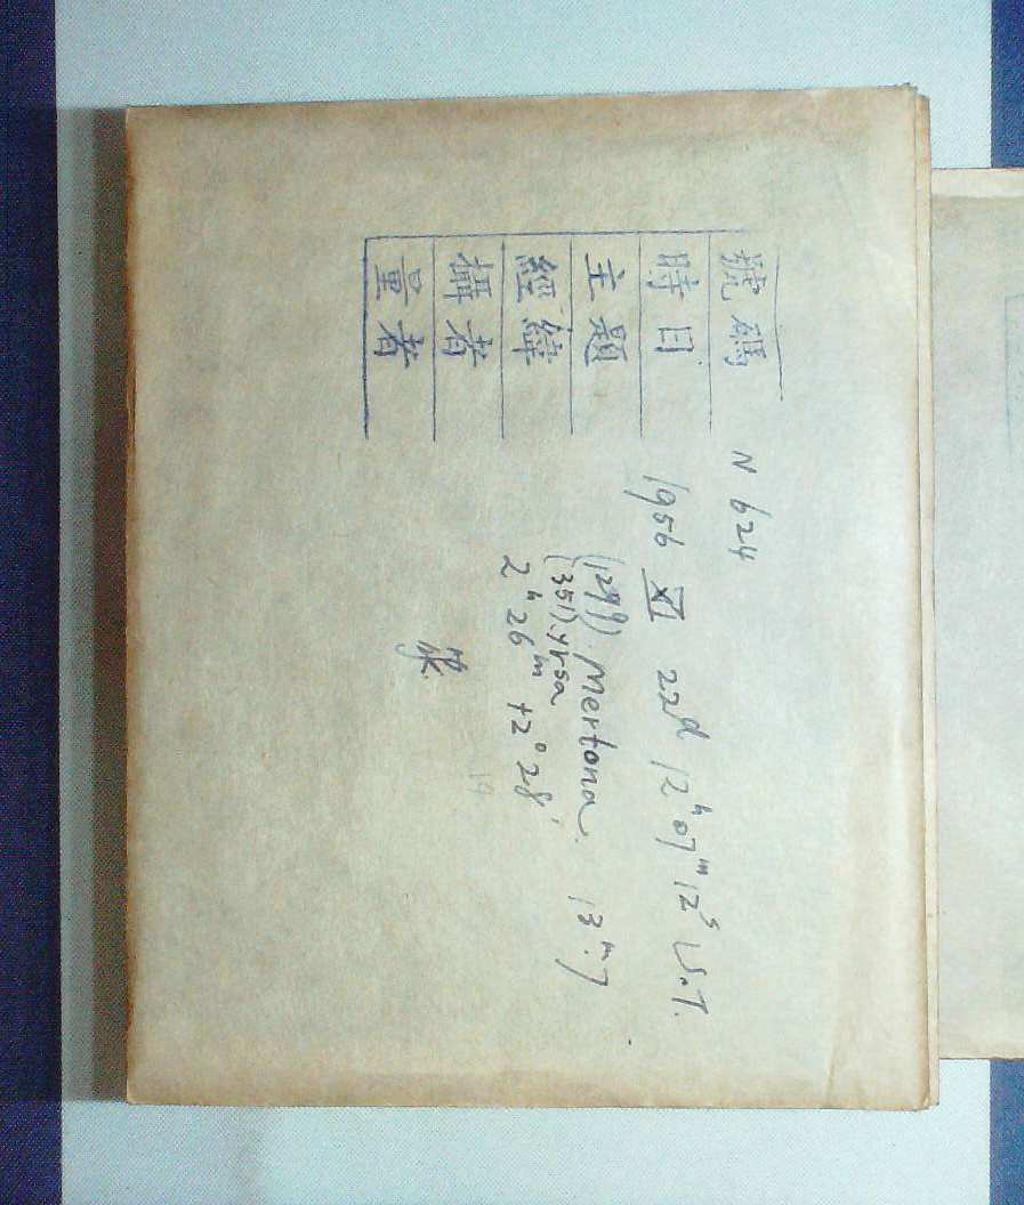 號碼 N 624
時日 1956 XI 22d 12h 07m 12s U.T.
主題 (1299). Mertona. 13m.7
(351). yrsa
經緯 2h 26m +2° 28'
攝者 张
量者